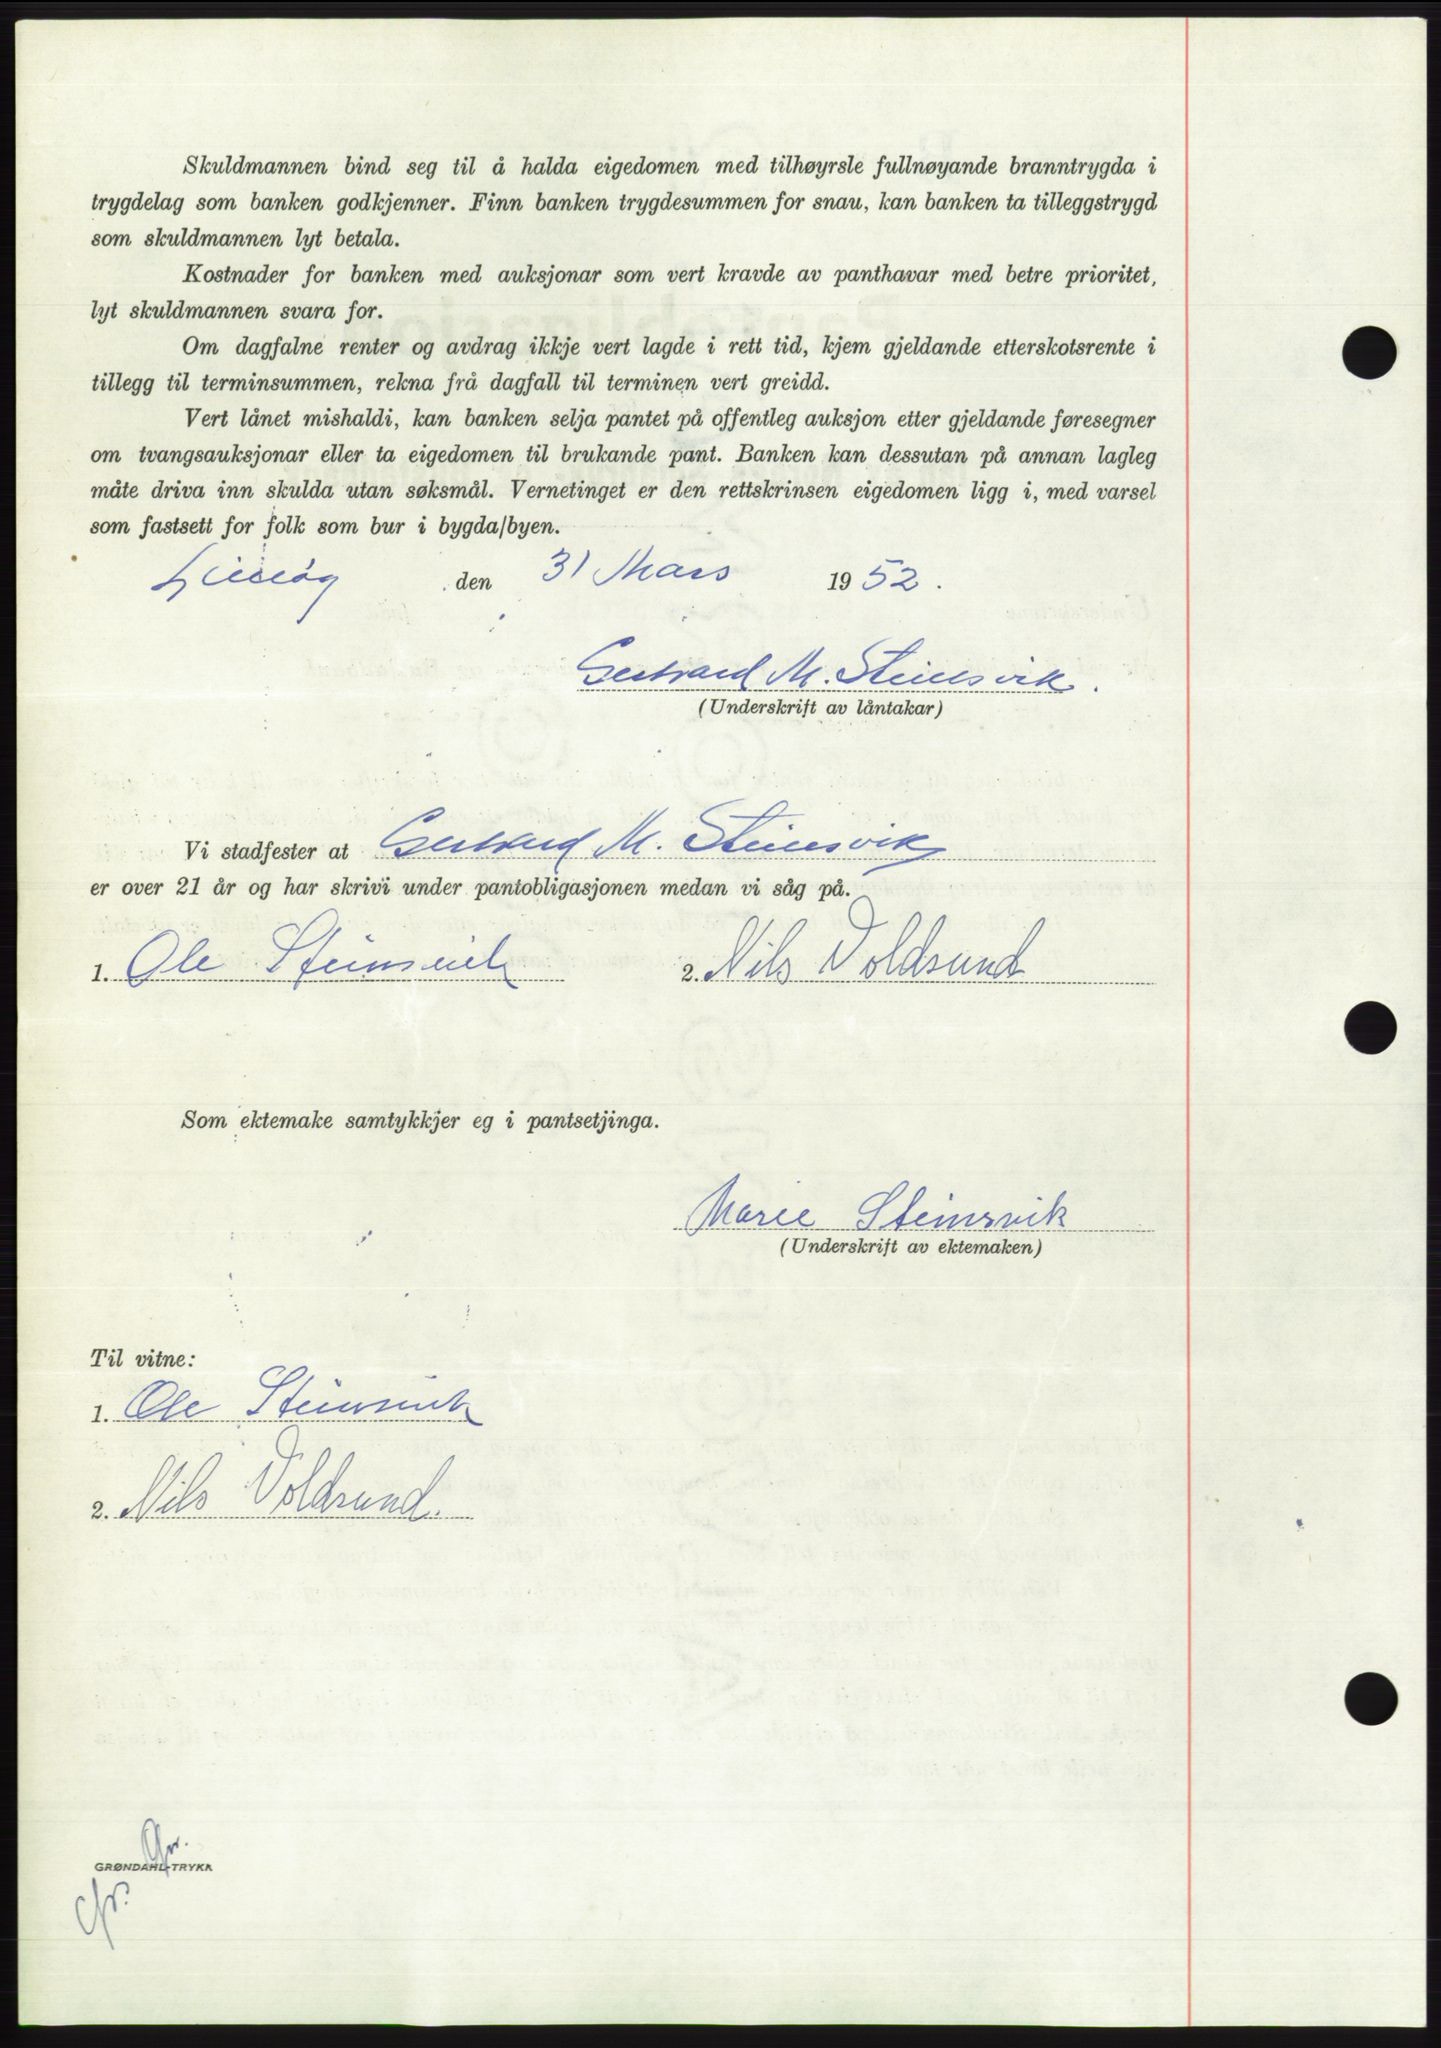 Skuldmannen bind seg til å halda eigedomen med tilhøyrsle fullnøyande branntrygda i
trygdelag som banken godkjenner. Finn banken trygdesummen for snau, kan banken ta tilleggstrygd
som skuldmannen lyt betala.
Kostnader for banken med auksjonar som vert kravde av panthavar med betre prioritet,
lyt skuldmannen svara for.
Om dagfalne renter og avdrag ikkje vert lagde i rett tid, kjem gjeldande etterskotsrente i
tillegg til terminsummen, rekna frå dagfall til terminen vert greidd.
Vert lånet mishaldi, kan banken selja pantet på offentleg auksjon etter gjeldande føresegner
om tvangsauksjonar eller ta eigedomen til brukande pant. Banken kan dessutan på annan lagleg
måte driva inn skulda utan søksmål. Vernetinget er den rettskrinsen eigedomen ligg i, med varsel
som fastsett for folk som bur i bygda/byen.
den 31 Mars 1952.
M. Steinsvik.
(Underskrift av låntakar)
Vi stadfester at M. Steinsvik
er over 21 år og har skrivi under pantobligasjonen medan vi såg på.
1. Ole Steinsvik 2. Nils Voldsund
Som ektemake samtykkjer eg i pantsetjinga.
Marie Steinsvik
(Underskrift av ektemaken)
Til vitne:
1. Ole Steinsvik
2. Nils Voldsund.
GRØNDAHL-TRYKK